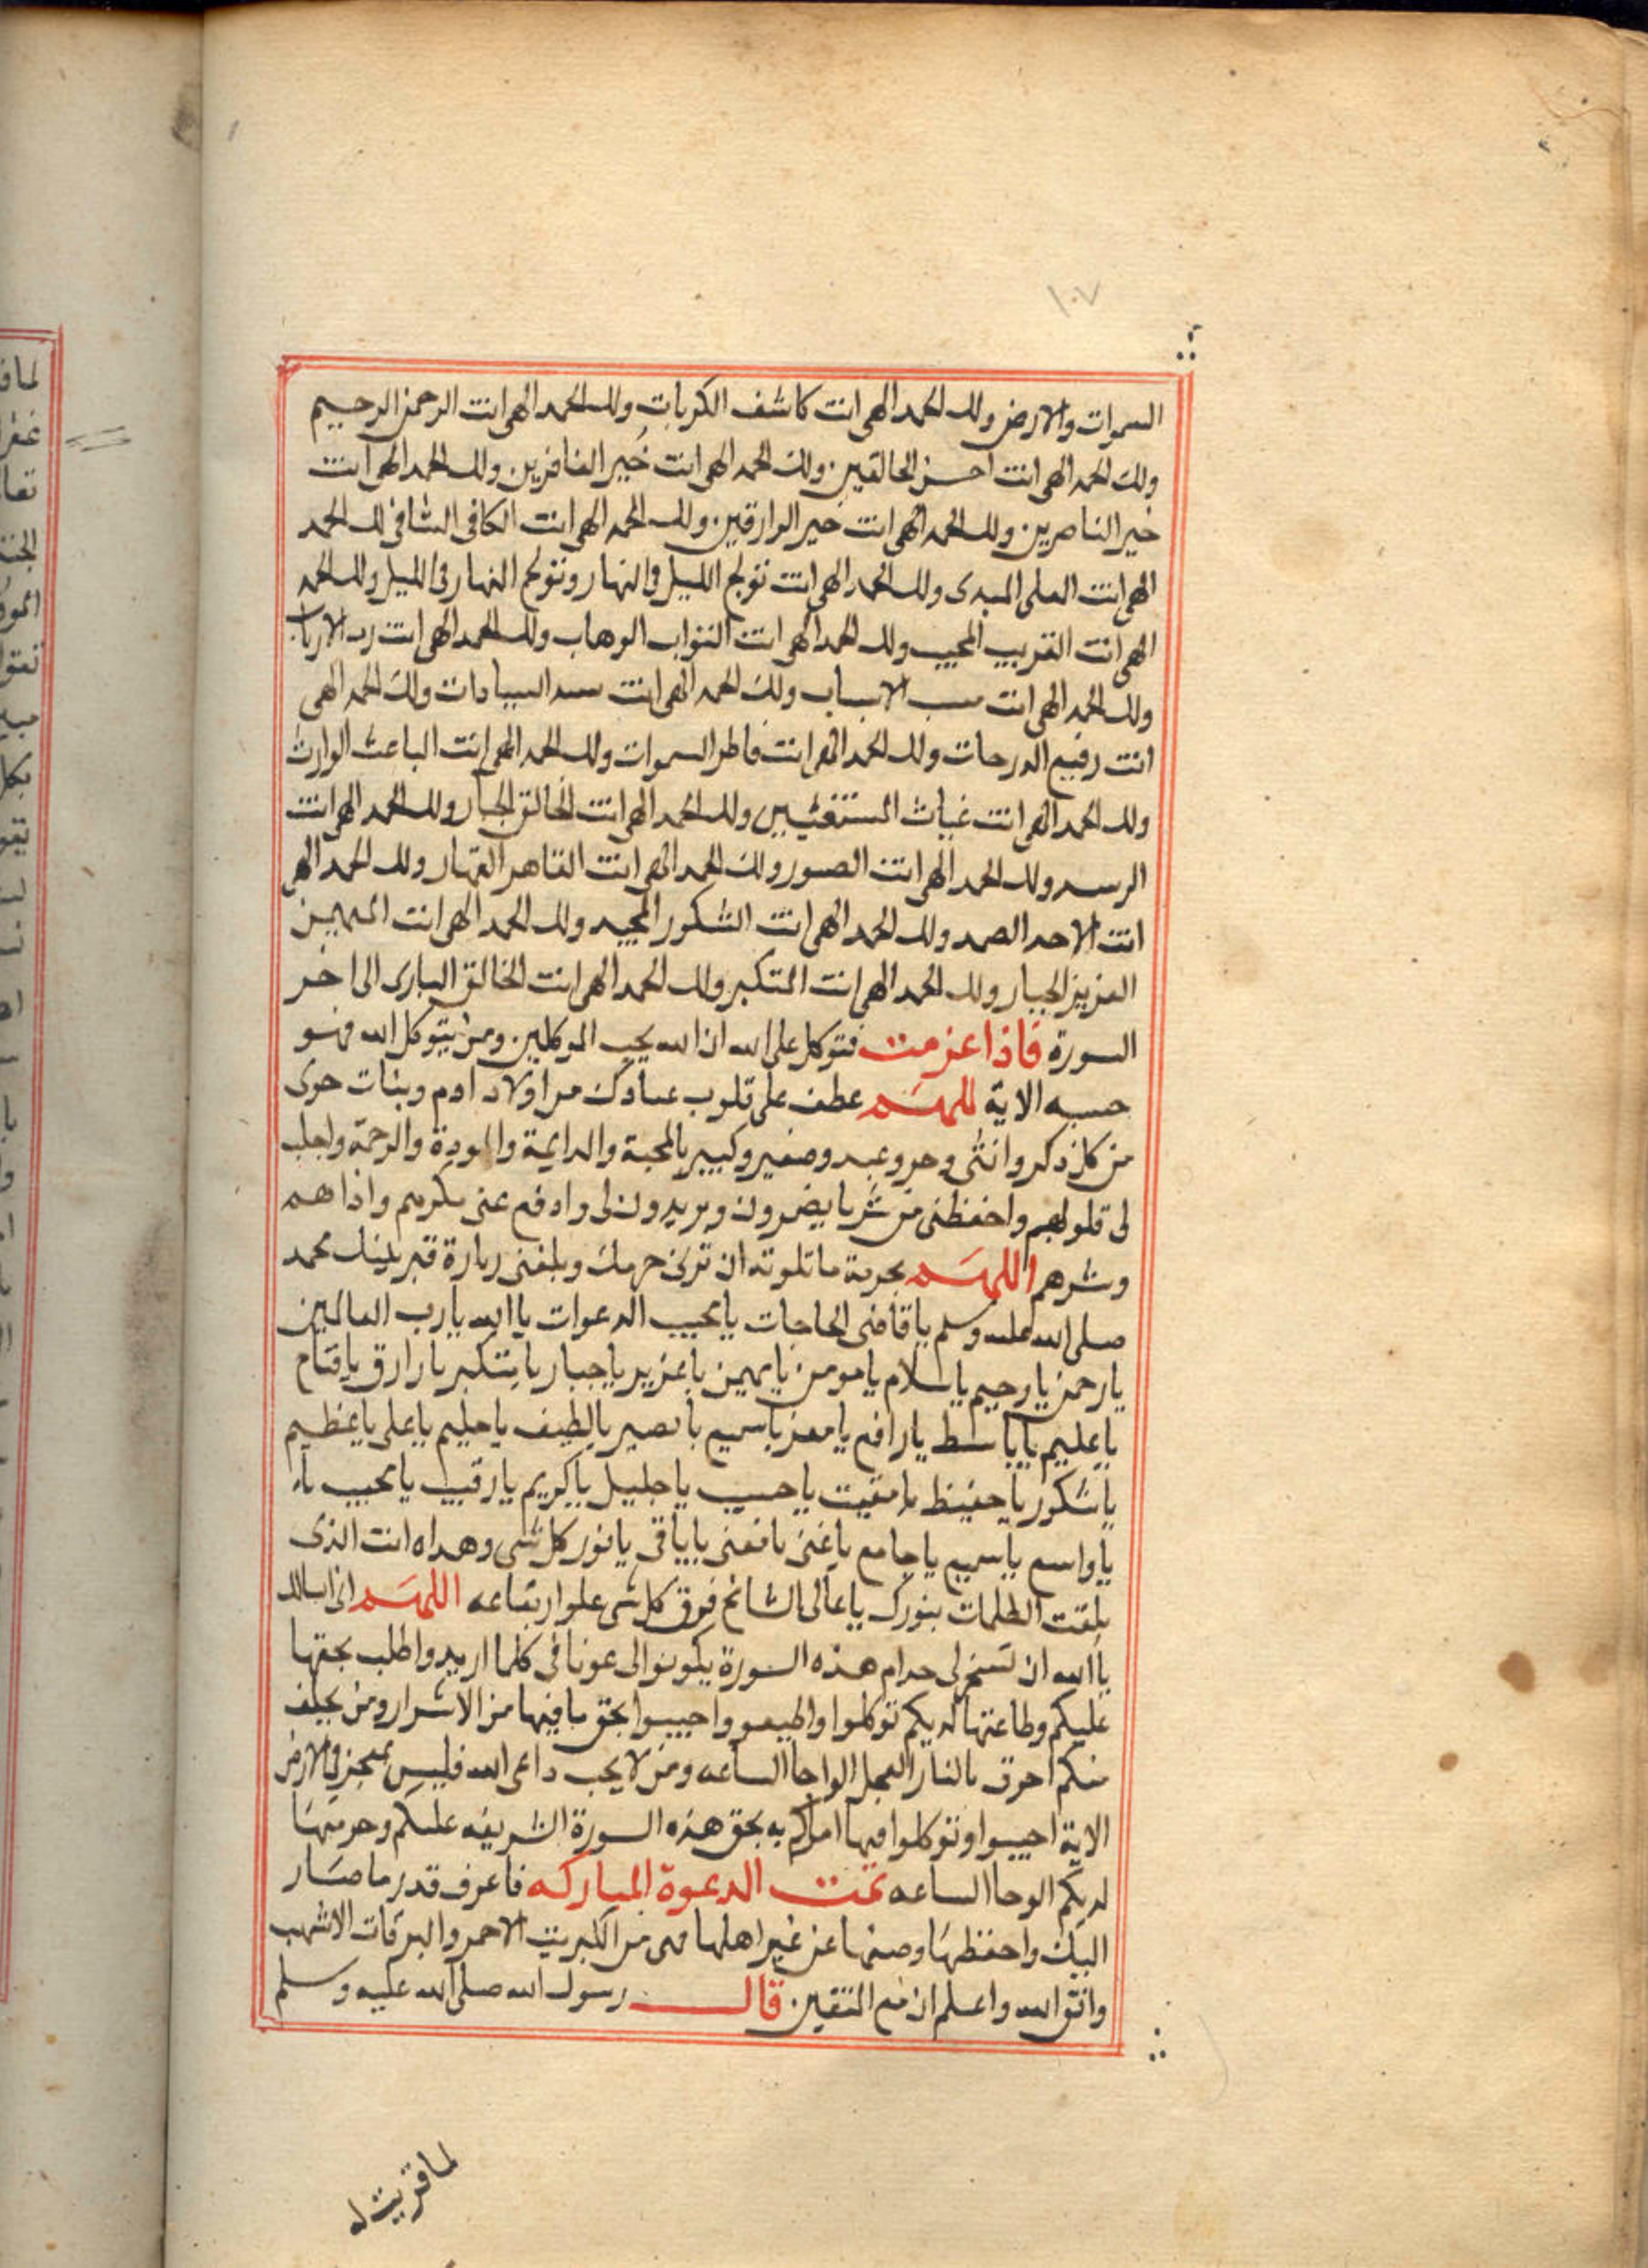 ١٠٧
السموات والارض ولك الحمد الهى انت كاشف الكربات ولك الحمد الهى انت الرحمن الرحيم
ولك الحمد الهى انت احسن الخالقين ولك الحمد الهى انت خير الغافرين ولك الحمد الهى انت
خير الناصرين ولك الحمد الهى انت خير الرازقين ولك الحمد الهى انت الكافى الشافى لك الحمد
الهى انت العلى المبدى ولك الحمد الهى انت تولج الليل فى النهار وتولج النهار فى الليل ولك الحمد
الهى انت القريب المجيب ولك الحمد الهى انت التواب الوهاب ولك الحمد الهى انت رب الارباب
ولك الحمد الهى انت مسبب الاسباب ولك الحمد الهى انت سيد السادات ولك الحمد الهى
انت رفيع الدرجات ولك الحمد الهى انت فاطر السموات ولك الحمد الهى انت الباعث الوارث
ولك الحمد الهى انت غياث المستغثيين ولك الحمد الهى انت الخالق الجبار ولك الحمد الهى انت
الرسيد ولك الحمد الهى انت الصبور ولك الحمد الهى انت القاهر القهار ولك الحمد الهى
انت الاحد الصمد ولك الحمد الهى انت الشكور المجيد ولك الحمد الهى انت المهيمن
العزيز الجبار ولك الحمد الهى انت المتكبر ولك الحمد الهى انت الخالق البارى الى اخر
السورة فاذا عزمت فتوكل على الله ان الله يحب المتوكلين ومن يتوكل الله فهو
حسبه الاية اللهم عطف على قلوب عبادك من اولاد ادم وبنات حوى
من كل ذكر وانثى وحر وعبد وصغير وكبير بالمحبة والدايمة والمودة والرحمة واجلب
لى قلوبهم واحفظنى من شر ما يضمرون ويريدون لى وادفع عنى مكرهم واذاهم
وشرهم اللهم بحرمة ما تلوته ان ترنى حرمك وبلغنى زيارة قبر نبيك محمد
صلى الله عليه وسلم يا قاضى الحاجات يا مجيب الدعوات يا الله يا رب العالمين
يا رحمن يا رحيم يا سلام يا مومن يا مهيمن يا عزيز يا جبار يا متكبر يا رازق يا فتاح
يا عليم يا باسط يا رافع يا معز يا سميع يا بصير يا لطيف يا حليم يا على يا عظيم
يا شكور يا حفيظ يا مقيت يا حسيب يا جليل يا كريم يا رقيب يا مجيب يا
يا واسع يا سميع يا جامع يا غنى يا مغنى يا باقى يا نور كل شى وهداه انت الذى
فلقت الظلمات بنورك يا عالى الشامخ فوق كل شى علو ارتفاعه اللهم انى اسالك
يا الله ان تسخر لى خدام هذه السورة يكونوا لى عونا فى كلما اريد واطلب بحقها
عليكم وطاعتها لديكم توكلوا واطيعو واجيبوا بحق ما فيها من الاسرار ومن يخلف
منكم احرق بالنار العجل الواحا الساعه ومن لا يجب داعى الله فليس بمعجز فى الارض
الاية اجيبوا وتوكلوا فيما امركم به بحق هذه السورة الشريفه عليكم وحرمتها
لديكم الوحا الساعه تمت الدعوة المباركه فاعرف قدر ما صار
اليك واحفظها وصنها عن غير اهلها فهى من الكبريت الاحمر والبرقات الاشهب
واتق الله واعلم ان مع المتقين قال رسول الله صلى الله عليه وسلم
لما قريت له